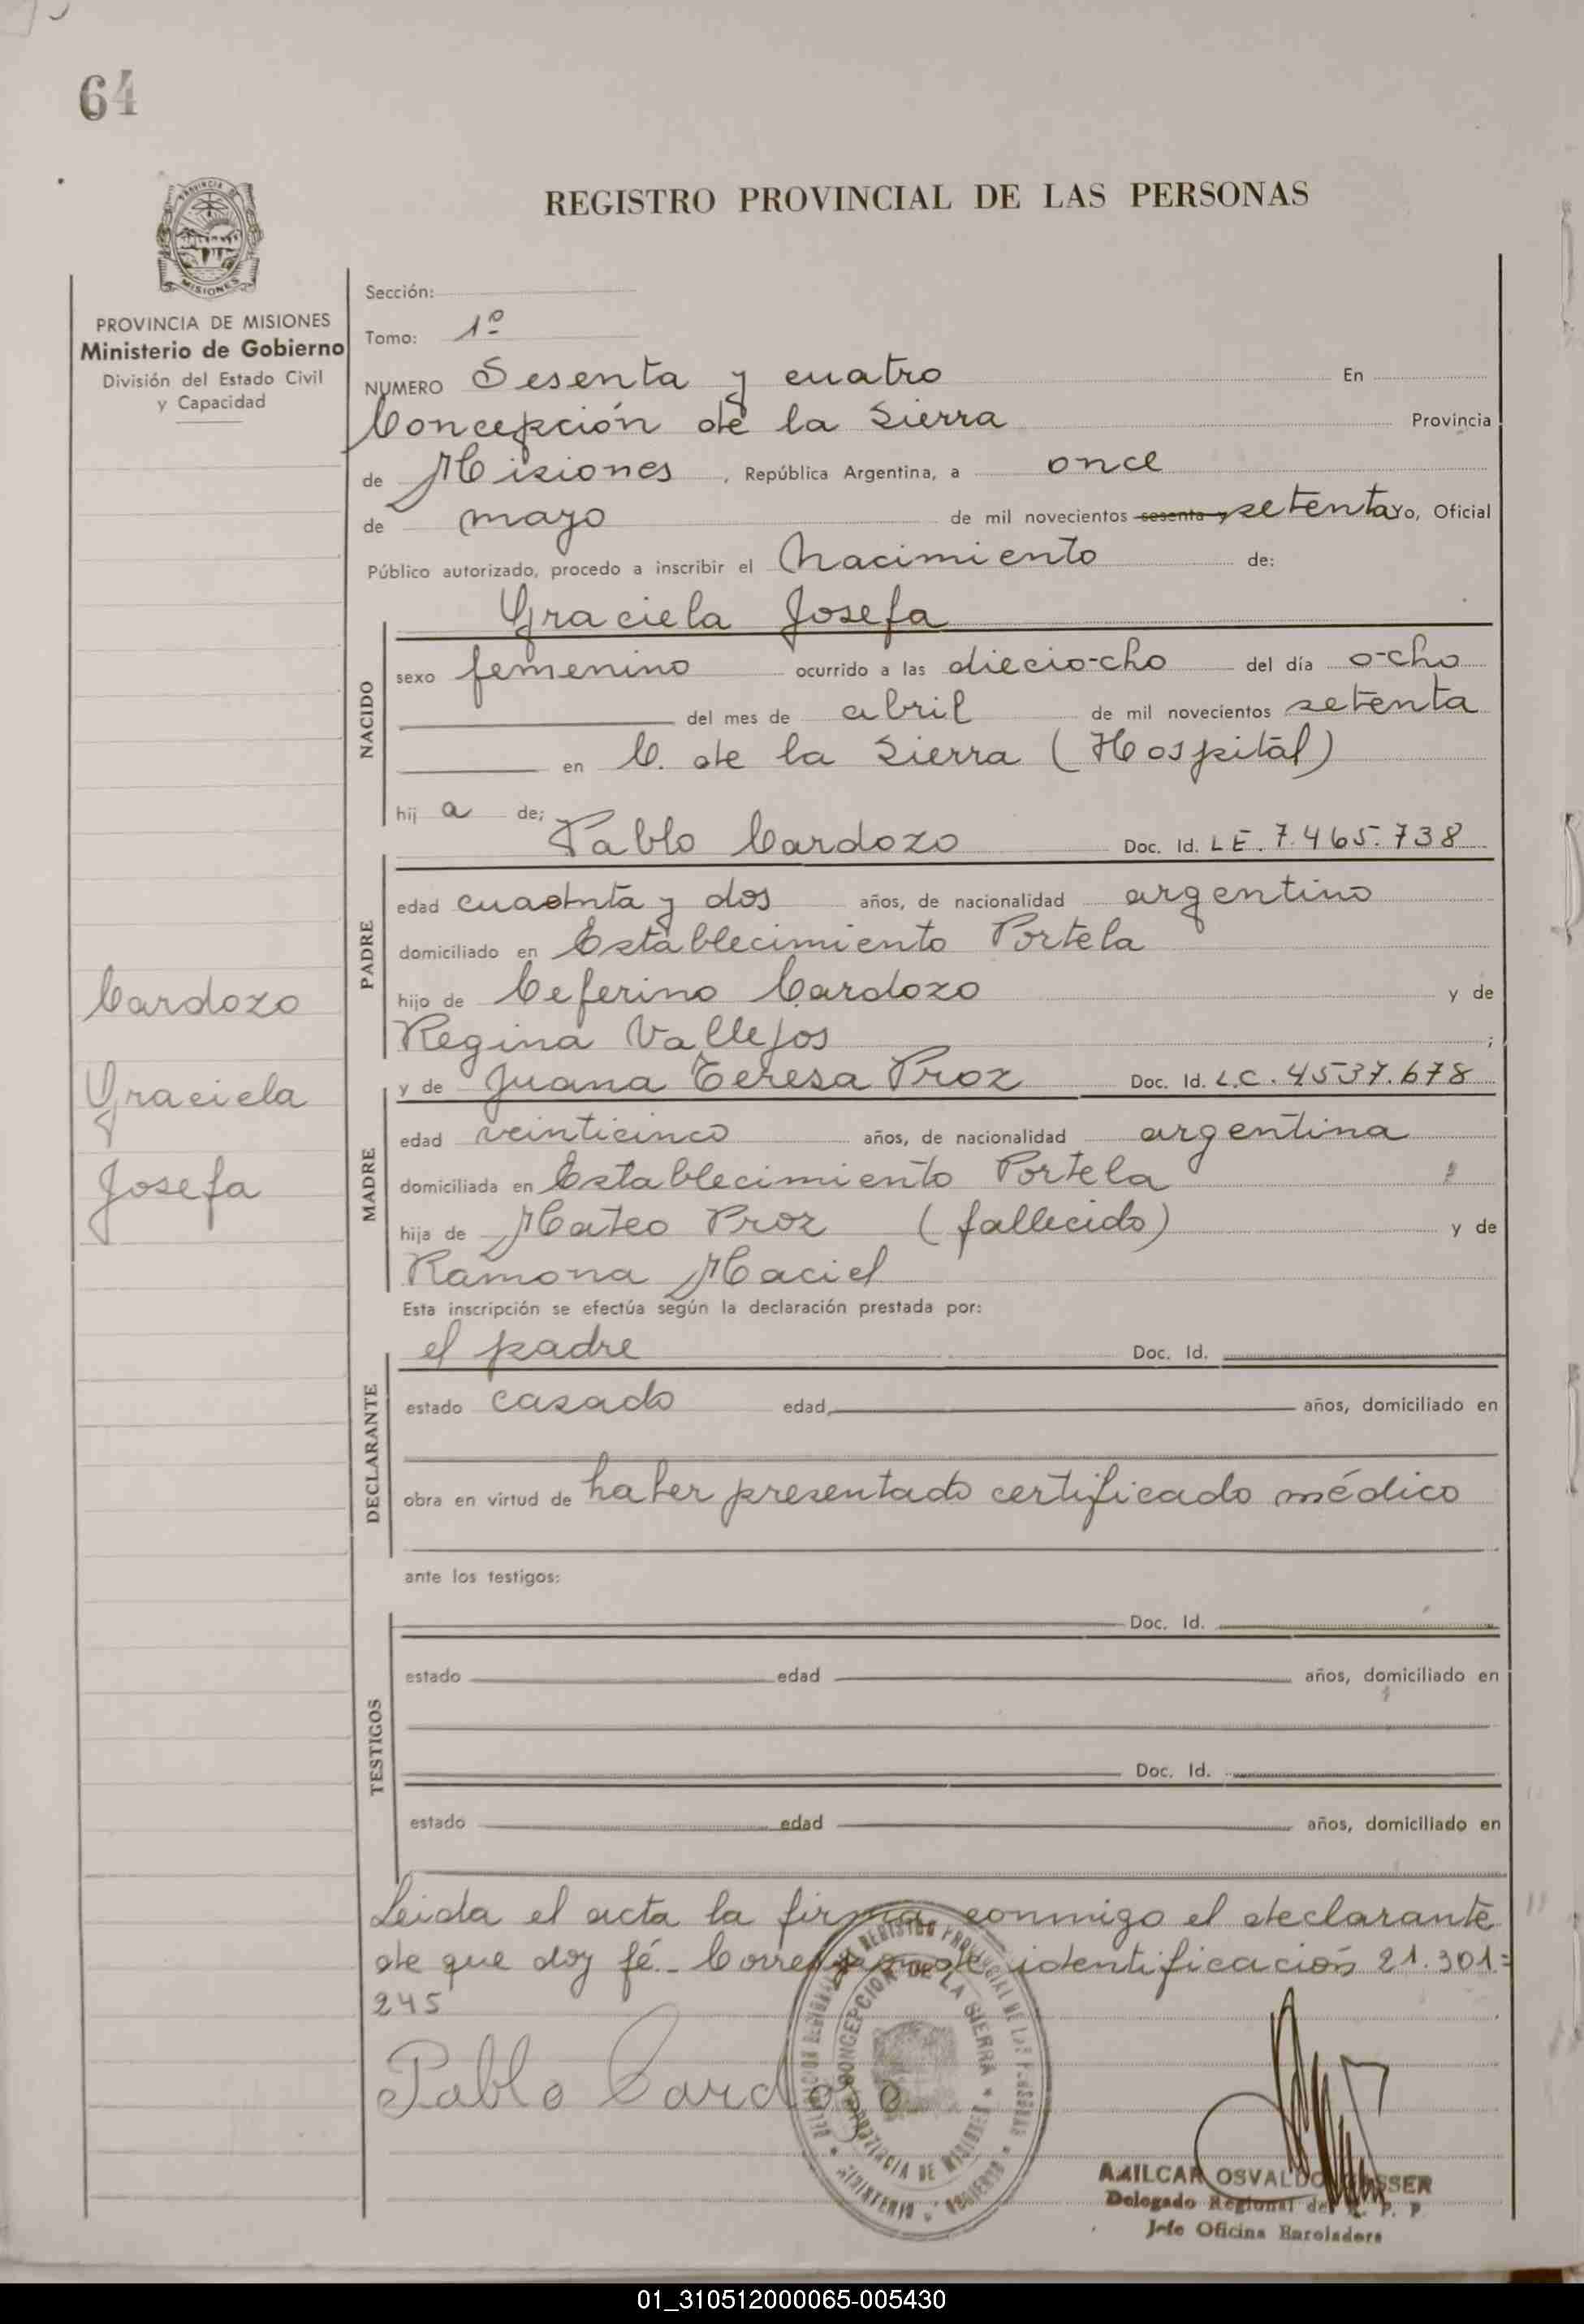 64
REGISTRO PROVINCIAL DE LAS PERSONAS
PROVINCIA DE MISIONES
Ministerio de Gobierno
División del Estado Civil
y Capacidad
Cardozo
Graciela
Josefa
Sección:
Tomo: 1º
NUMERO Sesenta y cuatro En
Concepción de la Sierra Provincia
de Misiones, República Argentina, a once
de mayo de mil novecientos sesenta y setenta Yo, Oficial
Público autorizado, procedo a inscribir el Nacimiento de:
NACIDO
Graciela Josefa
sexo femenino ocurrido a las dieciocho del día ocho
del mes de abril de mil novecientos setenta
en C. de la Sierra (Hospital)
hij a de;
PADRE
Pablo Cardozo Doc. Id. LE. 7.465.738
edad cuarenta y dos años, de nacionalidad argentino
domiciliado en Establecimiento Portela
hijo de Ceferino Cardozo y de
Regina Vallejos ;
MADRE
y de Juana Teresa Proz Doc. Id. L.C. 4537.678
edad veinticinco años, de nacionalidad argentina
domiciliada en Establecimiento Portela
hija de Mateo Proz (fallecido) y de
Ramona Maciel
Esta inscripción se efectúa según la declaración prestada por:
DECLARANTE
el padre Doc. Id.
estado casado edad años, domiciliado en
obra en virtud de haber presentado certificado médico
ante los testigos:
TESTIGOS
Doc. Id.
estado edad años, domiciliado en
Doc. Id.
estado edad años, domiciliado en
Leida el acta la firma conmigo el declarante
de que doy fé.- identificación 21.301=
245
Pablo Cardozo
CONCEPCION DE LA SIERRA * PROVINCIA DE MISIONES *
REGISTRO PROVINCIAL DE LAS PERSONAS
AMILCAR OSVALDO
Delegado Regional del R. P. P
Jefe Oficina
01_310512000065-005430